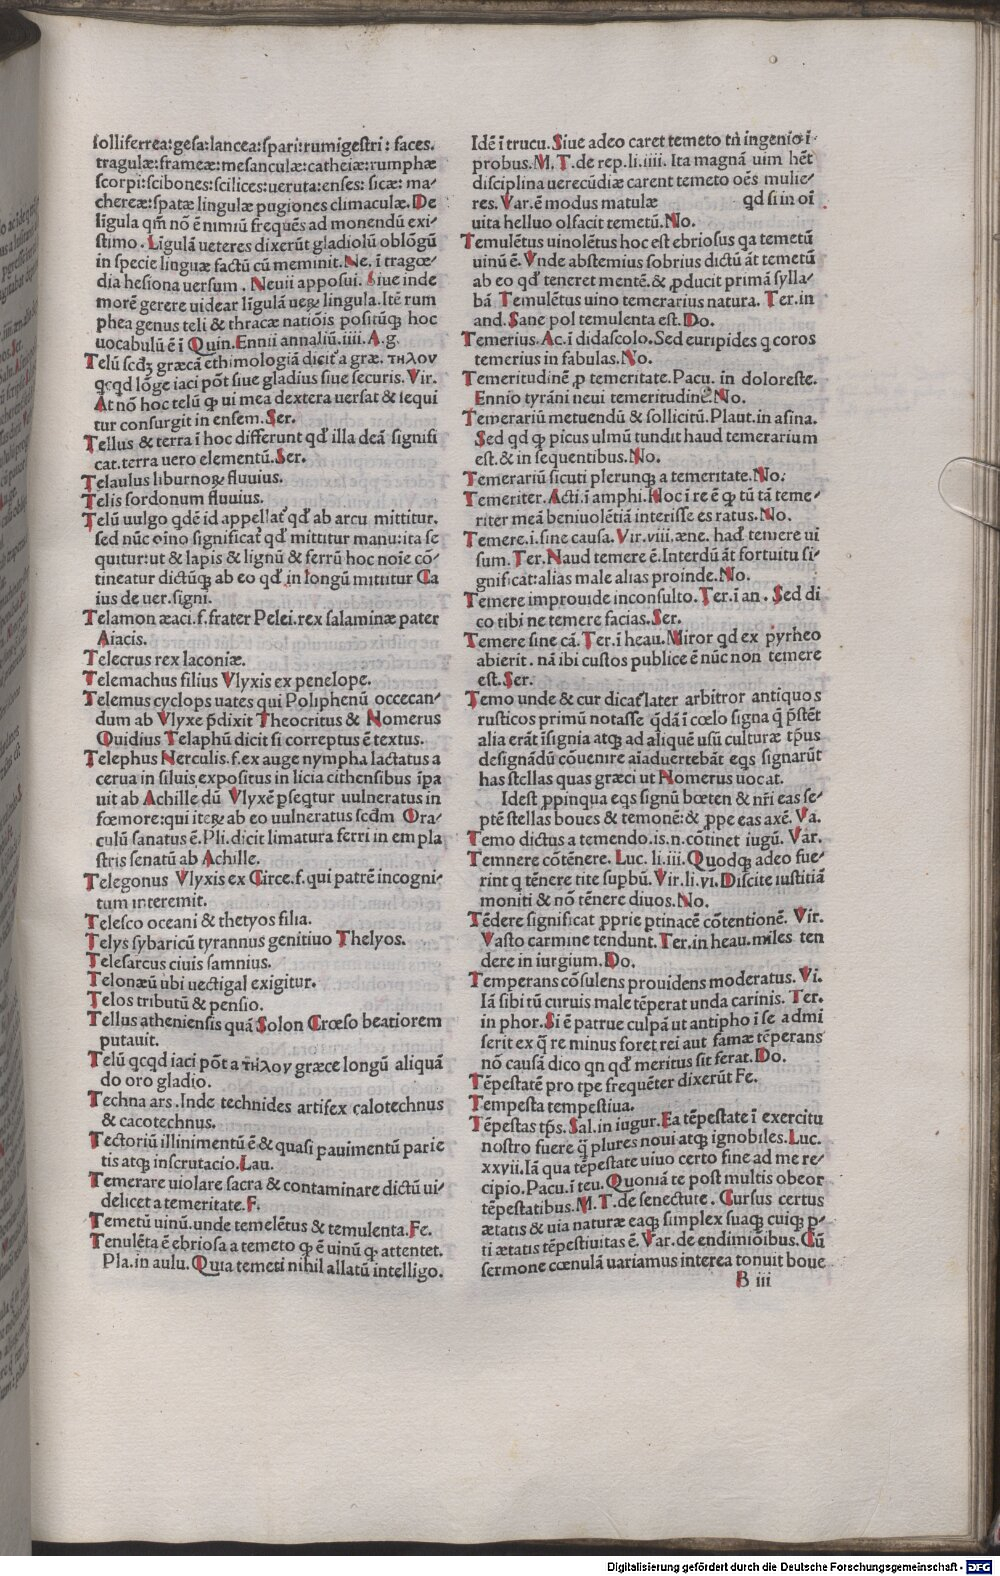 solliferrea:gesa:lancea:spari:rumigestri: faces.
tragulæ:frameæ:mesanculæ:catheiæ:rumphæ
scorpi:scibones:scilices:ueruta:enses: sicæ: ma⸗
chereæ:spatæ lingulæ pugiones climaculæ. De
ligula qm̄ nō ē nimiū frequēs ad monendū exi⸗
stimo. Ligulā ueteres dixerūt gladiolū oblōgū
in specie linguæ factū cū meminit. Ne. ī tragœ⸗
dia hesiona uersum. Neuii apposui. Siue inde
morē gerere uidear lī̄gulā ueꝝ lingula. Itē rum
phea genus teli & thracæ natiōis positūqꝫ hoc
uocabulū ē ī Quin. Ennii annaliū. iiii. A. g.
Telū scdꝫ græcā ethimologiā dicit̄ a græ. τηλον
qcqd lōge iaci pōt siue gladius siue securis. Vir.
At nō hoc telū ꝙ ui mea dextera uersat & sequi
tur consurgit in ensem. Ser.
Tellus & terra ī hoc differunt qd̓ illa deā signifi
cat. terra uero elementū. Ser.
Telaulus liburnoꝝ fluuius.
Telis sordonum fluuius.
Telū uulgo qdē id appellat̄ qd̓ ab arcu mittitur.
sed nūc oīno significat̄ qd̓ mittitur manu: ita se
quitur: ut & lapis & lignū & ferrū hoc noīe cō⸗
tineatur dictūqꝫ ab eo qd̓ in longū mittitur Ca
ius de uer. signi.
Telamon æaci. f. frater Pelei. rex salaminæ pater
Aiacis.
Telecrus rex laconiæ.
Telemachus filius Vlyxis ex penelope.
Telemus cyclops uates qui Poliphenū occecan⸗
dum ab Vlyxe p̄dixit Theocritus & Nomerus
Ouidius Telaphū dicit si correptus ē textus.
Telephus Nerculis. f. ex auge nympha lactatus a
cerua in siluis expositus in licia cithensibus īpa
uit ab Achille dū Vlyxē pseqtur uulneratus in
fœmore: qui iteꝝ ab eo uulneratus scdm Ora⸗
culū sanatus ē. Pli. dicit limatura ferri in empla
stris senatū ab Achille.
Telegonus Vlyxis ex Circe. f. qui patrē incogni⸗
tum interemit.
Telesco oceani & thetyos filia.
Telys sybaricū tyrannus genitiuo Thelyos.
Telesarcus ciuis samnius.
Telonæū ubi uectigal exigitur.
Telos tributū & pensio.
Tellus atheniensis quā Solon Crœso beatiorem
putauit.
Telū qcqd iaci pōt a τηλον græce longū aliquā
do oro gladio.
Techna ars. Inde technides artifex calotechnus
& cacotechnus.
Tectoriū illinimentū ē & quasi pauimentū parie
tis atqꝫ inscrutacio. Lau.
Temerare uiolare sacra & contaminare dictū ui⸗
delicet a temeritate. F.
Temetū uinū. unde temelētus & temulenta. Fe.
Tenulēta ē ebriosa a temeto ꝙ ē uinū ꝙ attentet.
Pla. in aulu. Quia temeti nihil allatū intelligo.
Idē ī trucu. Siue adeo caret temeto tn̄ ingenio ī⸗
probus. M. T. de rep. li. iiii. Ita magnā uim hēt
disciplina uerecūdiæ carent temeto oēs mulie⸗
res. Var. ē modus matulæ qd si in oī
uita helluo olfacit temetū. No.
Temulētus uinolētus hoc est ebriosus qa temetū
uinū ē. Vnde abstemius sobrius dictū āt temetū
ab eo qd̓ teneret mentē. & ꝓducit primā sylla⸗
bā Temulētus uino temerarius natura. Ter. in
and. Sane pol temulenta est. Do.
Temerius. Ac. ī didascolo. Sed euripides q coros
temerius in fabulas. No.
Temeritudinē ꝓ temeritate. Pacu. in doloreste.
Ennio tyrāni neui temeritudinē. No.
Temerariū metuendū & sollicitū. Plaut. in asina.
Sed qd ꝙ picus ulmū tundit haud temerarium
est. & in sequentibus. No.
Temerariū sicuti plerunqꝫ a temeritate. No.
Temeriter. Acti. ī amphi. Noc ī re ē ꝙ tū tā teme⸗
riter meā beniuolētiā interisse es ratus. No.
Temere. i. sine causa. Vir. viii. æne. had̓ temere ui
sum. Ter. Naud temere ē. Interdū āt fortuitu si⸗
gnificat: alias male alias proinde. No.
Temere improuide inconsulto. Ter. ī an. Sed di
co tibi ne temere facias. Ser.
Temere sine cā. Ter. ī heau. Miror qd ex pyrheo
abierit. nā ibi custos publice ē nūc non temere
est. Ser.
Temo unde & cur dicat̄ later arbitror antiquos
rusticos primū notasse qdā ī cœlo signa q̄ p̄stēt
alia erāt īsignia atqꝫ ad aliquē usū culturæ tp̄us
designādū couenire aīaduertebāt eqs signarūt
has stellas quas græci ut Nomerus uocat.
Idest ꝓpinqua eqs signū bœten & nr̄i eas se⸗
ptē stellas boues & temonē: & ꝓpe eas axē. Va.
Temo dictus a temendo. is. n. cōtinet iugū. Var.
Temnere cōtēnere. Luc. li. iii. Quodqꝫ adeo fue⸗
rint q tēnere tite supbū. Vir. li. vi. Discite iustitiā
moniti & nō tēnere diuos. No.
Tēdere significat ꝓprie ptinacē cōtentionē. Vir.
Vasto carmine tendunt. Ter. in heau. miles ten
dere in iurgium. Do.
Temperans cōsulens prouidens moderatus. Vi.
Iā sibi tū curuis male tēperat unda carinis. Ter.
in phor. Si ē patrue culpā ut antipho ī se admi
serit ex q̄ re minus foret rei aut famæ tēperans
nō causā dico qn qd̓ meritus sit ferat. Do.
Tēpestatē pro tp̄e frequēter dixerūt Fe.
Tempesta tempestiua.
Tēpestas tp̄s. Sal. in iugur. Ea tēpestate ī exercitu
nostro fuere q̄ plures noui atqꝫ ignobiles. Luc.
xxvii. Iā qua tēpestate uiuo certo fine ad me re⸗
cipio. Pacu. ī teu. Quoniā te post multis obeor
tēpestatibus. M. T. de senectute. Cursus certus
ætatis & uia naturæ eaqꝫ simplex suaqꝫ cuiqꝫ p⸗
ti ætatis tēpestiuitas ē. Var. de endimiōibus. Cū
sermone cœnulā uariamus interea tonuit boue
B iii
Digitalisierung gefördert durch die Deutsche Forschungsgemeinschaft - DFG